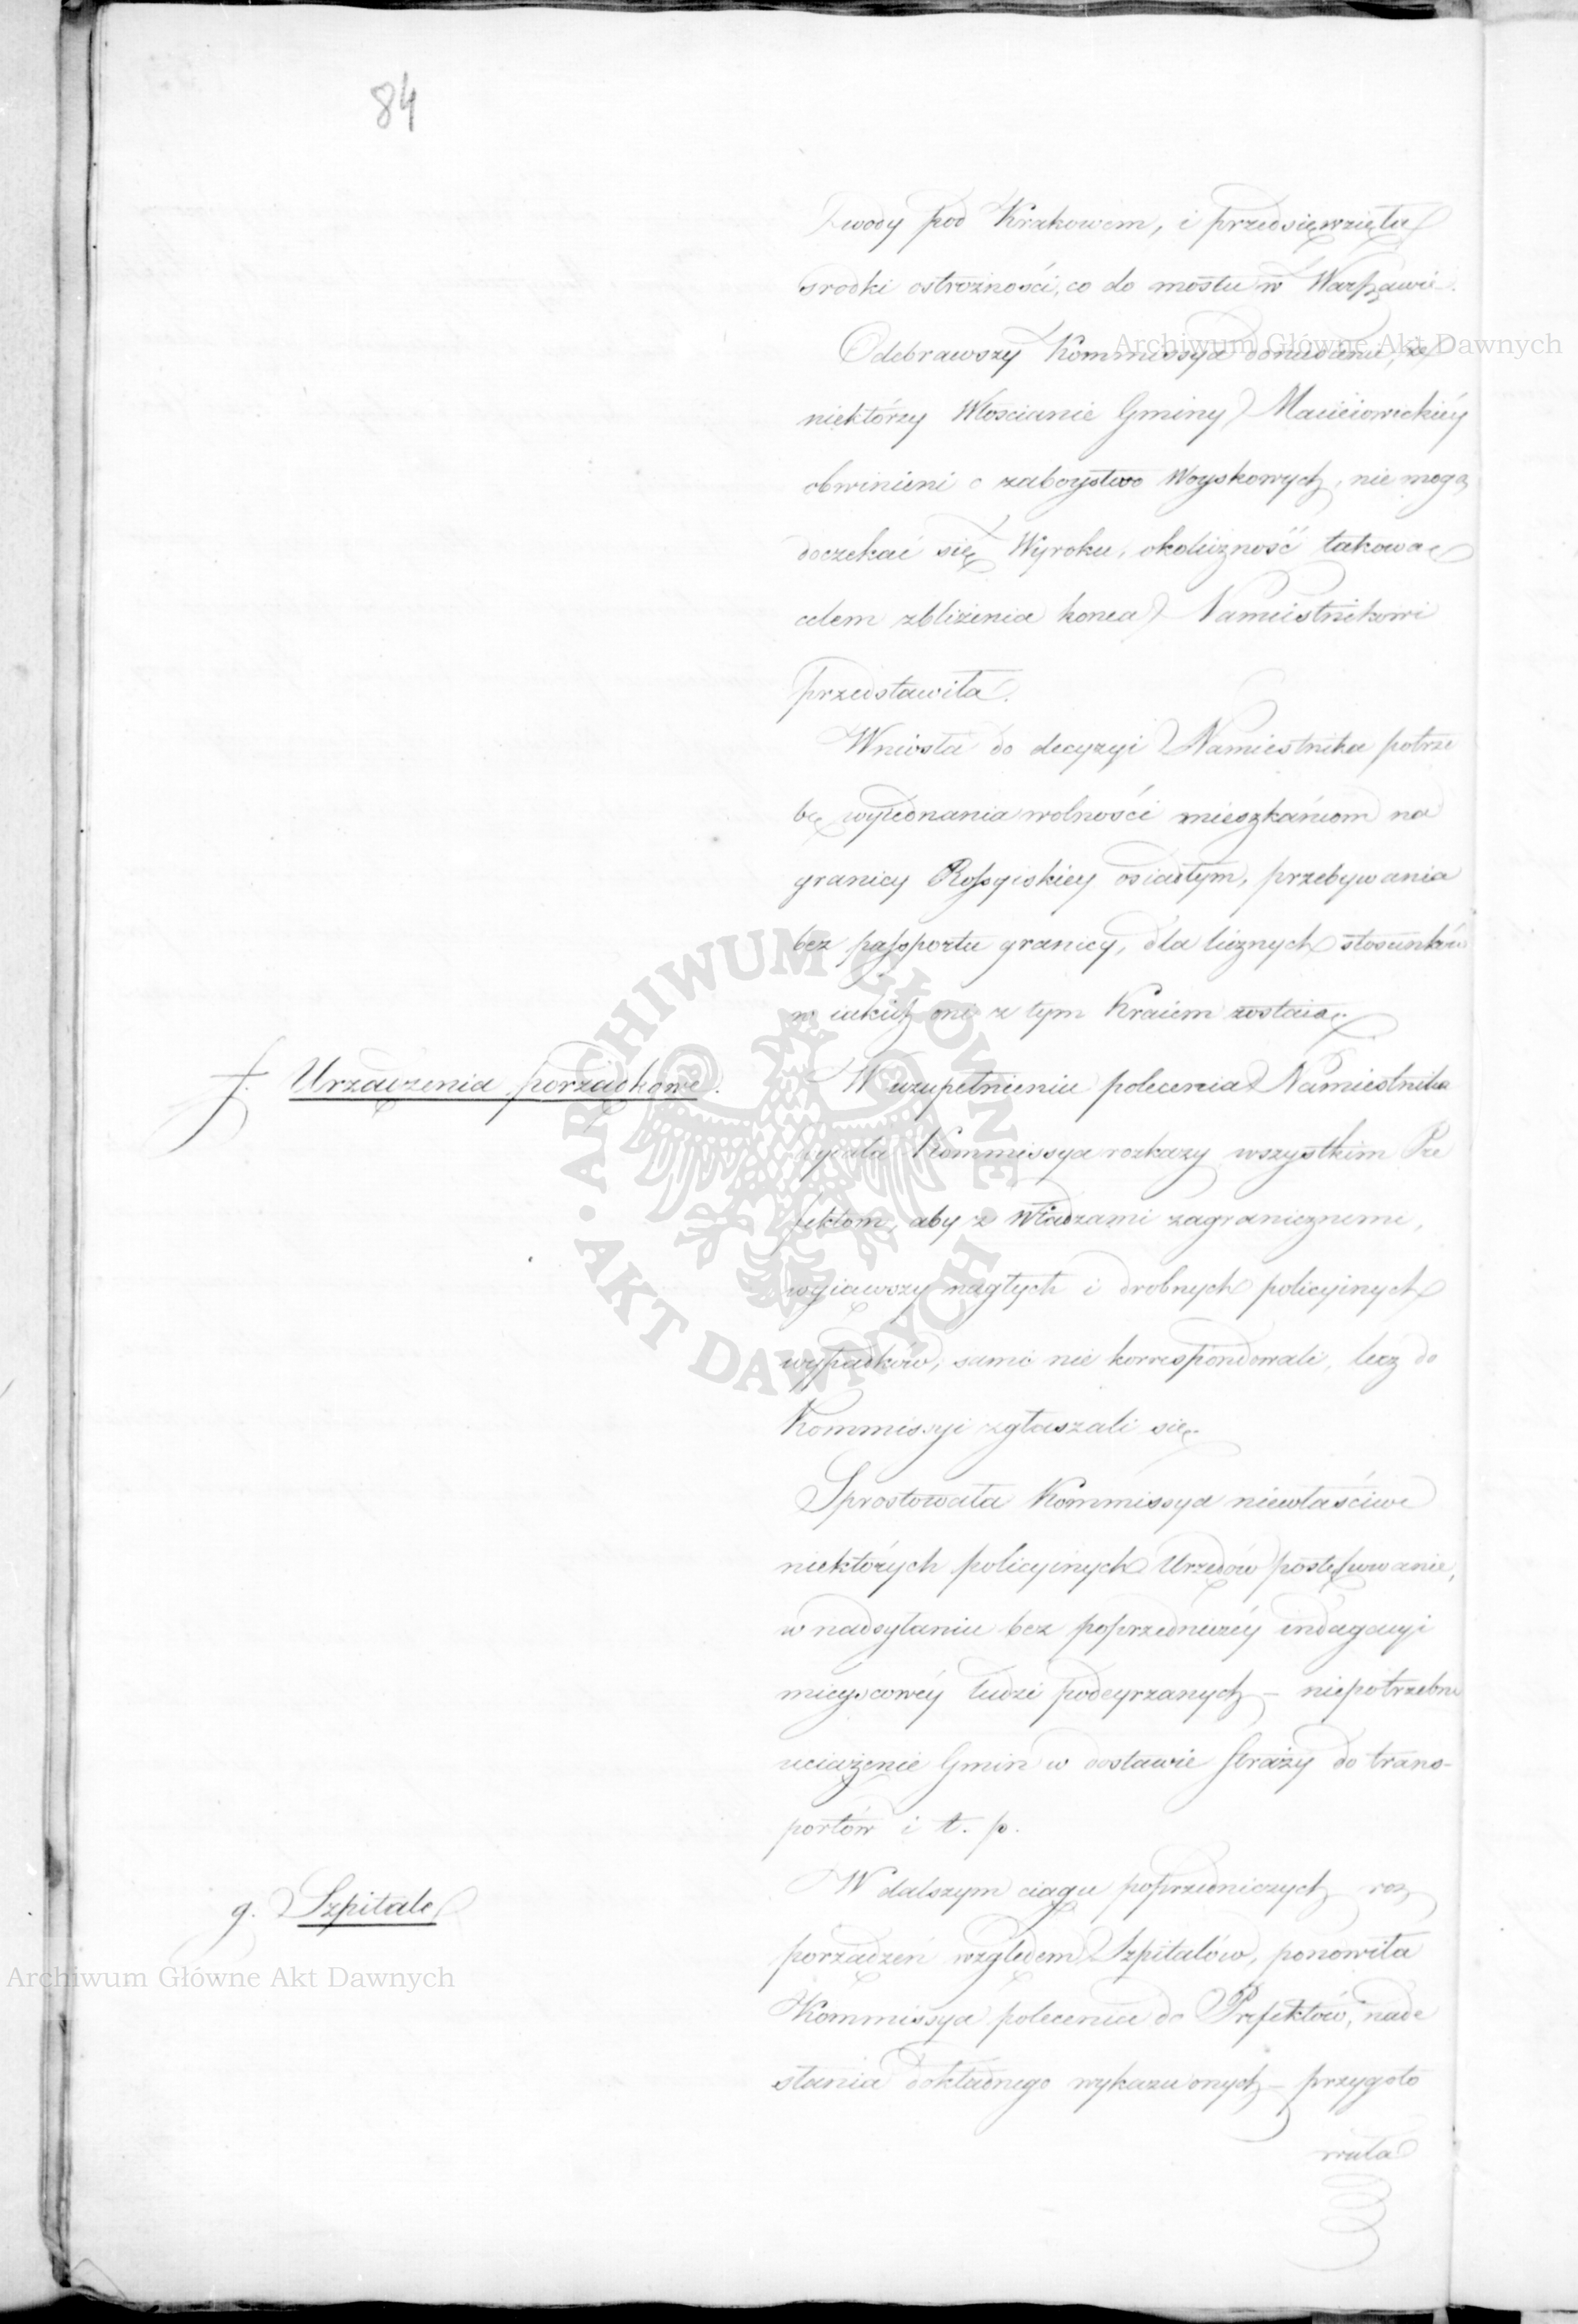 84
wody pod Krakowem, i przedsięwzięła
srodki ostrożności, co do mostu w Warszawie.
Odebrawszy Kommissya doniesienie, że
niektórzy Włoscianie Gminy Macieiowickiéy
obwinieni o zaboystwo Woyskowych, nie mogą
doczekać się Wyroku, okoliczność takową
celem zbliżenia końca Namiestnikowi
przedstawiła.
Wniosła do decyzyi Namiestnika potrze
bę wyiednania wolności mieszkańcom na
granicy Rossyiskiey osiadłym, przebywania
bez passportu granicy, dla licznych stosunków
w iakich oni z tym Kraiem zostaią.
f. Urządzenia porządkowe.
W uzupełnieniu polecenia Namiestnika
wydała Kommissya rozkazy wszystkim Pre
fektom, aby z Władzami zagranicznemi,
wyiąwszy nagłych i drobnych policyinych
wypadków, sami nie korrespondowali, lecz do
Kommissyi zgłaszali się.
Sprostowała Kommissya niewłaściwe
niektórych policyinych Urzędów postępowanie,
w nadsyłaniu bez poprzedniczéy indagacyi
mieyscowéy ludzi podeyrzanych – niepotrzebne
uciążenie Gmin w dostawie straży do trans-
portów i t. p.
g. Szpitale
W dalszym ciągu poprzedniczych roz
porządzeń względem Szpitalów, ponowiła
Kommissya polecenie do Prefektów, nade
słania dokładnego wykazu onych – przygoto
wała
Archiwum Główne Akt Dawnych
Archiwum Główne Akt Dawnych
ARCHIWUM GŁÓWNE • AKT DAWNYCH •